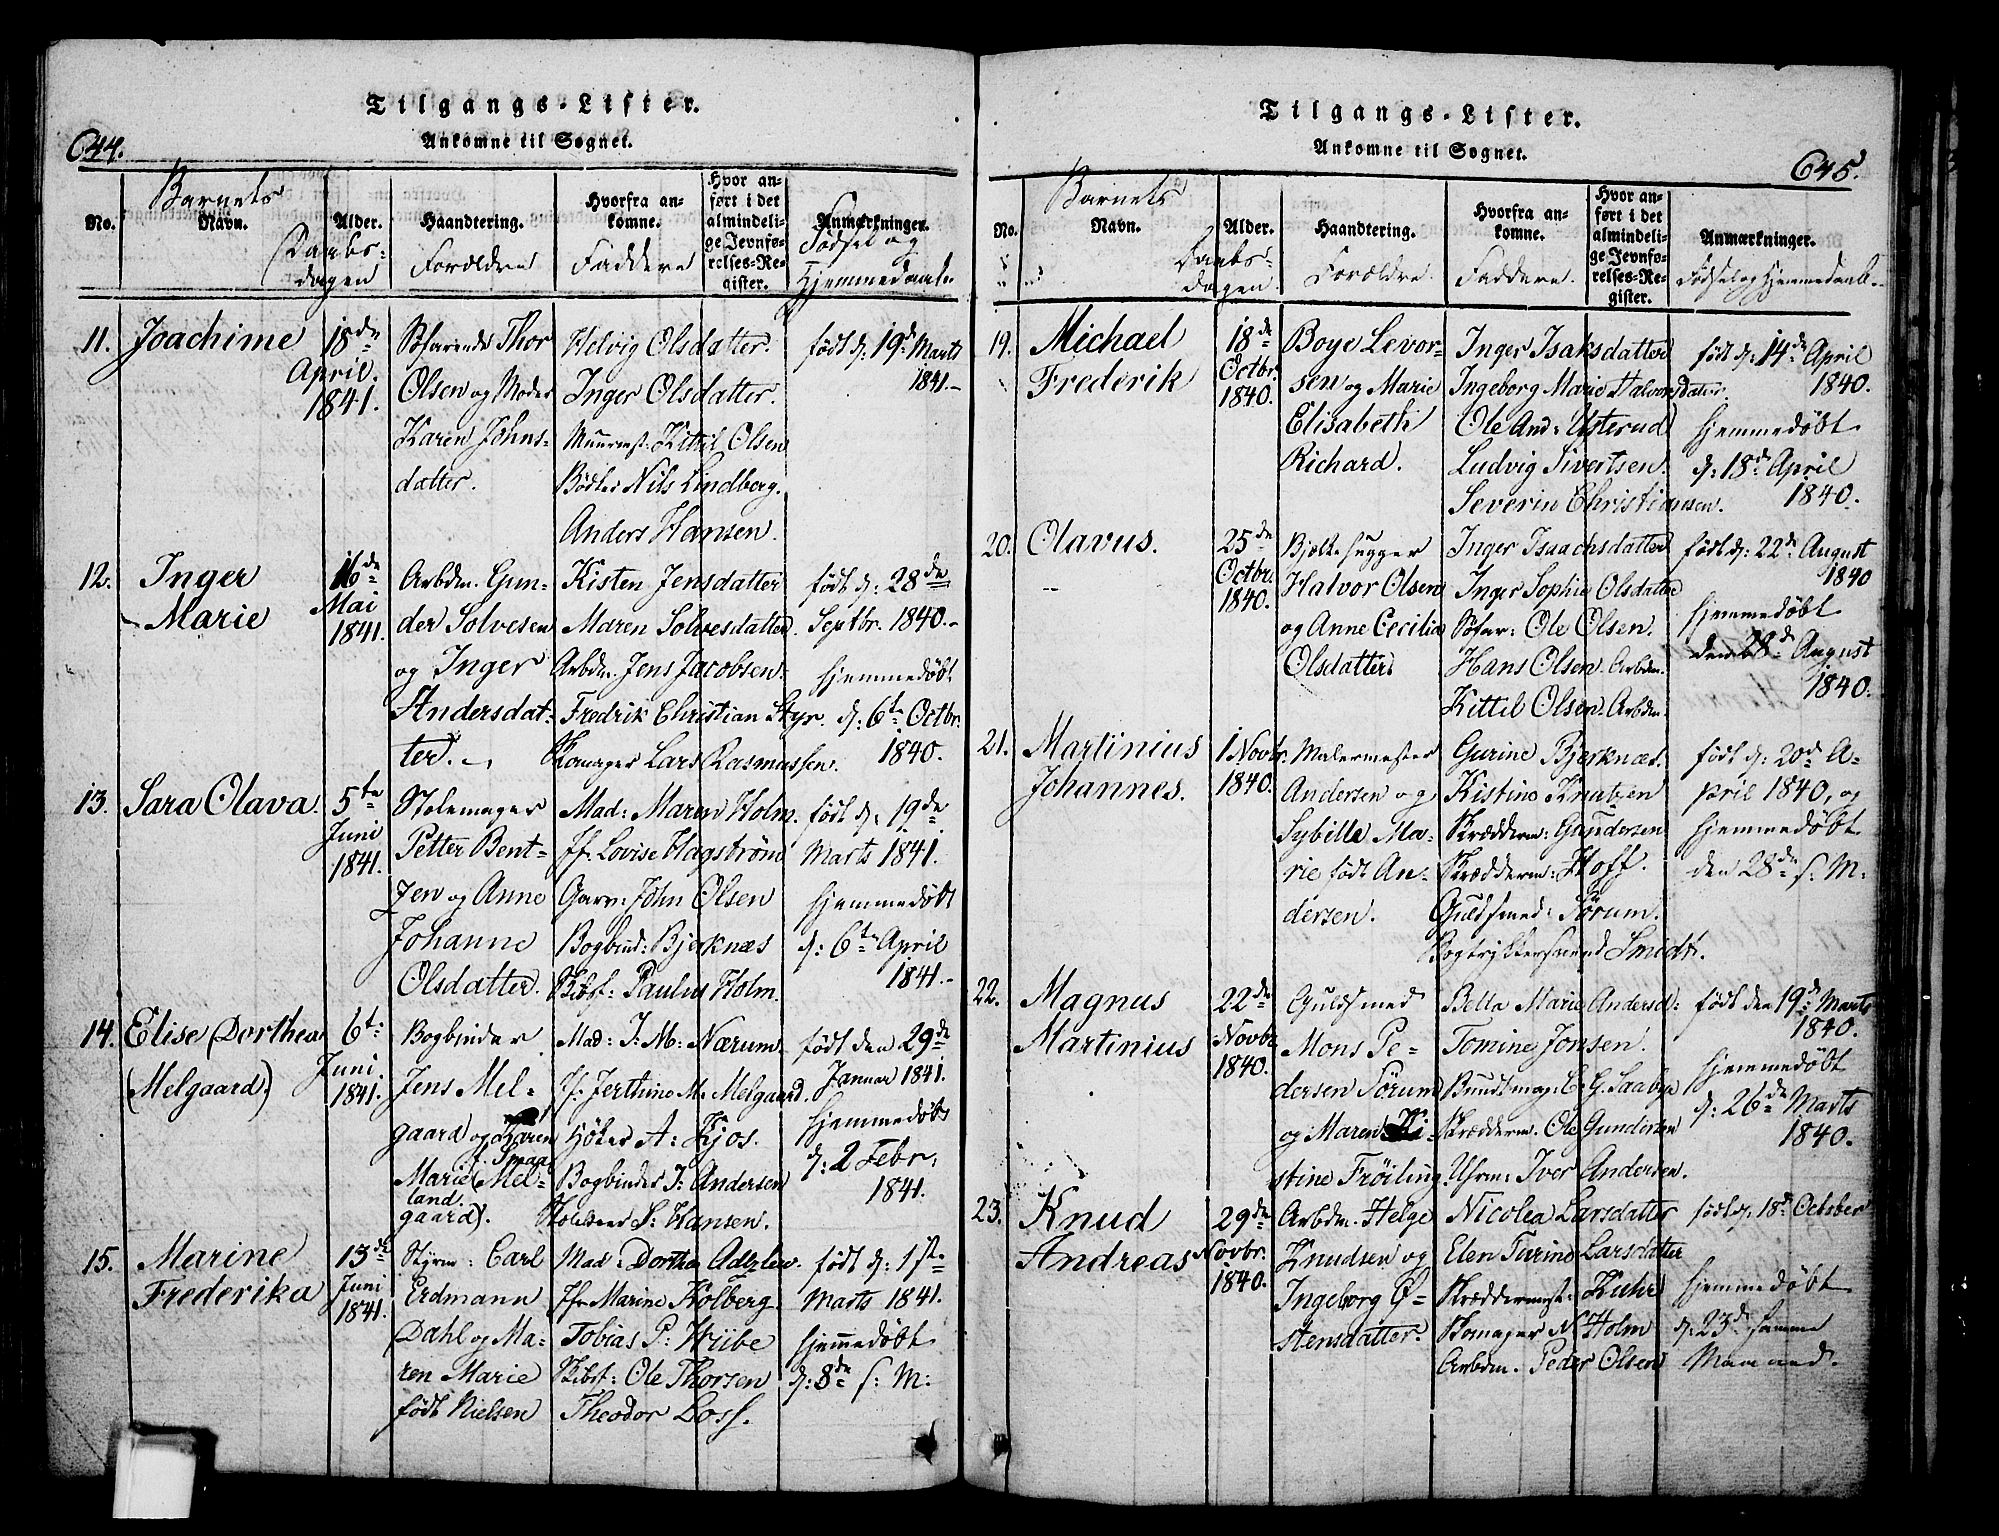 Tilgangs-Lister.
Ankomne til Sognet.
644.
Barnets
No.
Navn.
Daabs-
dagen
Alder.
Haandtering.
Forældre
Hvorfra an-
komne.
Faddere
Hvor an-
ført i det
almindeli-
ge Jevnfø-
relses-Re-
gister.
Anmærkninger.
Fødsel og
Hjemmedaab.
11.
Joachime
18de
April.
1841.
Søfarende Thor
Olsen og Moder
Karen Johns-
datter.
Helvig Olsdatter.
Inger Olsdatter.
Muurmst: Kittil Olsen
Bødker Nils Lindberg.
Anders Hansen.
født d: 19de Marts
1841.-
12.
Inger
Marie
16de
Mai
1841.
Arbdm. Gun-
der Solvesen
og Inger
Andersdat-
ter.
Kisten Jensdatter
Maren Solvesdatter
Arbdm. Jens Jacobsen.
Fredrik Christian Styr.
Skomager Lars Rasmussen.
født d: 28de
Septbr. 1840.-
hjemmedøbt
d: 6te Octbr.
1840.
13.
Sara Olava.
5te
Juni
1841.
Stolemager
Petter Bent-
zen og Anne
Johanne
Olsdatter.
Mad: Maren Holm.
Jfr. Lovise Hagstrøm
Garv: John Olsen
Bogbind: Bjerknæs
Skibsf: Paulus Holm.
født d: 19de
Marts 1841.
hjemmedøbt
d: 6te April
1841.-
14.
Elise Dorthea
(Melgaard)
6te
Juni.
1841.
Bogbinder
Jens Mel-
gaard og Karen
Marie (Mel-
Smaa
land.
gaard).
Mad: J: M: Nærum.
Jf: Jerthine M. Melgaard.
Høker A: Kjos.
Bogbinder J: Andersen
S: Hansen.
født den 29de
Januar 1841.
hjemmedøbt
d: 2 Febr:
1841.
15.
Marine
Frederika
13de
Juni
1841.
Styrm: Carl
Erdmann
Dahl og Ma-
ren Marie
født Nielsen
Mad: Dorthea Adzlev.
Jfr Marine Kolberg
Tobias P: Wiibe
Skibst: Ole Thorsen
Theodor Loss.
født d: 1ste
Marts 1841.
hjemmedøbt
d: 8de s: M:
Tilgangs-Lister.
Ankomne til Sognet.
645.
Barnets
No.
Navn.
Daabs-
dagen.
Alder.
Haandtering.
Forældre.
Hvorfra an-
komne.
Faddere.
Hvor an-
ført i det
almindeli-
ge Jevnfø-
relses-Re-
gister.
Anmærkninger.
Fødsel og Hjemmedaab.
19.
Michael
Frederik
18de
Octbr.
1840.
Boye Levor-
sen og Marie
Elisabeth
Richard.
Inger Isaksdatter
Ingeborg Marie Halvorsdatter.
Ole And: Usterud
Ludvig Sivertsen.
Severin Christiansen.
født d: 14de April
1840.
hjemmedøbt
d: 18de April
1840.
20.
Olavus.
25de
Octbr.
1840.
Bjelkehugger
Halvor Olsen
og Anne Cecilia
Olsdatter.
Inger Isaachsdatter
Inger Sophie Olsdatter
Søfar: Ole Olsen.
Hans Olsen. Arbdm.
Kittil Olsen. Arbdm.
født d: 22de August
1840
hjemmedøbt
den 28de August
1840.
21.
Martinius
Johannes.
1 Novbr.
1840.
Malermester
Andersen og
Sybille Ma-
rie født An-
dersen.
Gurine Bjerknæs.
Kistine Knutzen
Skrædderm: Gundersen
Skrædderm: Hoff.
Guldsmed: Sørum.
Bogtrykkersvend Smidt.
født d: 20de A-
pril 1840, og
hjemmedøbt
den 28de s: M:
22.
Magnus
Martinius
22de
Novbr.
1840.
Guldsmed
Mons Pe-
dersen Sørum
og Maren Ki-
stine Frøiling.
Bella Marie Andersd:
Tomine Jonsen.
Bundtmag: C. G. Saabye
Skrædderm. Ole Gundersen
Uhrm: Iver Andersen.
født den 19de Marts
1840.
hjemmedøbt
d: 26de Marts
1840.
23.
Knud
Andreas
29de
Novbr.
1840.
Arbdm. Helge
Knudsen og
Ingeborg Ø-
stensdatter.
Nicolea Larsdatter
Elen Turine Larsdatter
Skræddermest: Kuhr
Skomager N Holm
Arbdm. Peder Olsen
født d. 18de October
hjemmedøbt
d: 23de samme
Maaned.